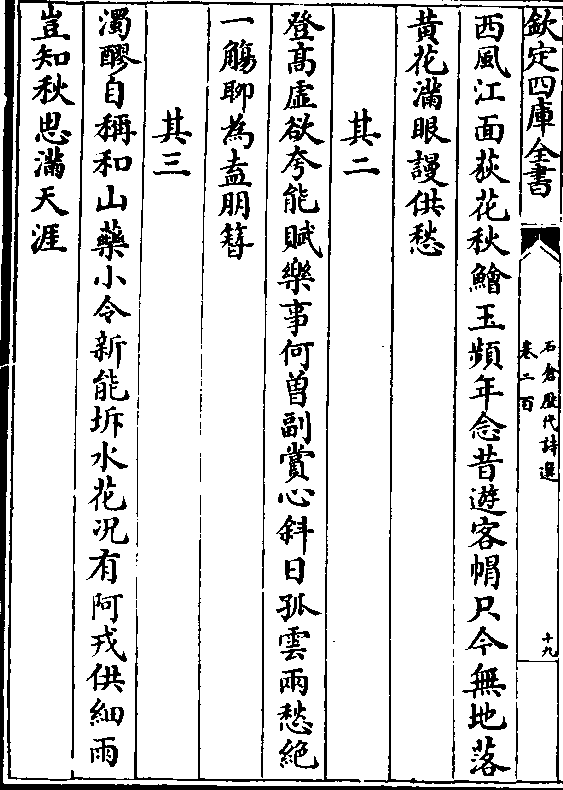 欽定四庫全書
石倉歷代詩選
卷二百
十九
西風江面荻花秋鱠玉頻年念昔遊客帽只今無地落
黃花滿眼謾供愁
其二
登髙虛欲夸能賦樂事何曽副賞心斜日孤雲兩愁絶
一觴聊為盍朋簮
其三
濁醪自稱和山藥小令新能坼水花况有阿戎供細雨
豈知秋思滿天涯